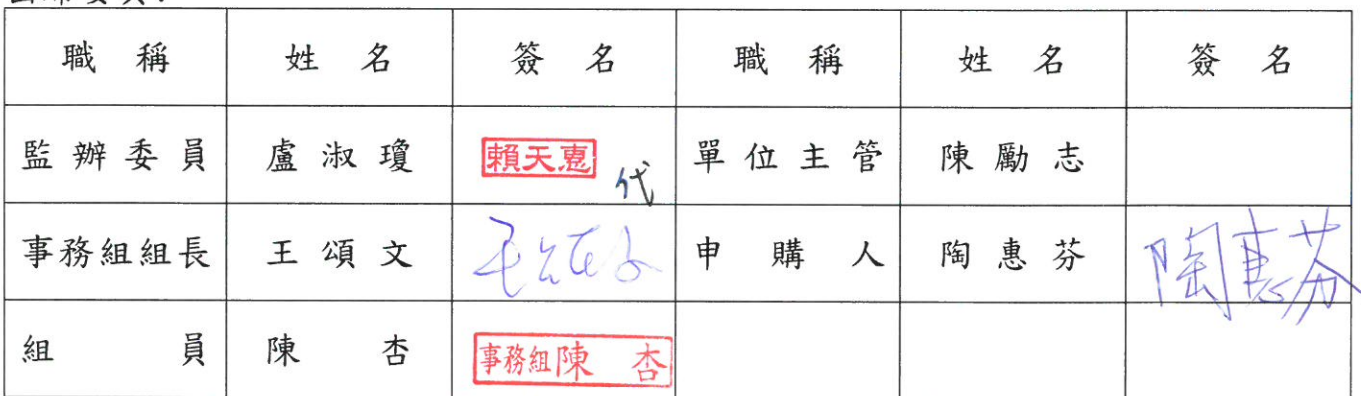 職稱 姓名 簽名 職稱 姓名 簽名
監辦委員 盧淑瓊 賴天惠 代 單位主管 陳勵志
事務組組長 王頌文 王頌文 申購人 陶惠芬 陶惠芬
組員 陳杏 事務組陳杏